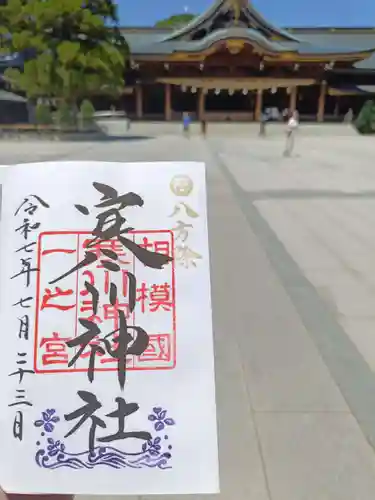 八方除
寒川神社
相模國
一之宮
令和七年七月二十三日